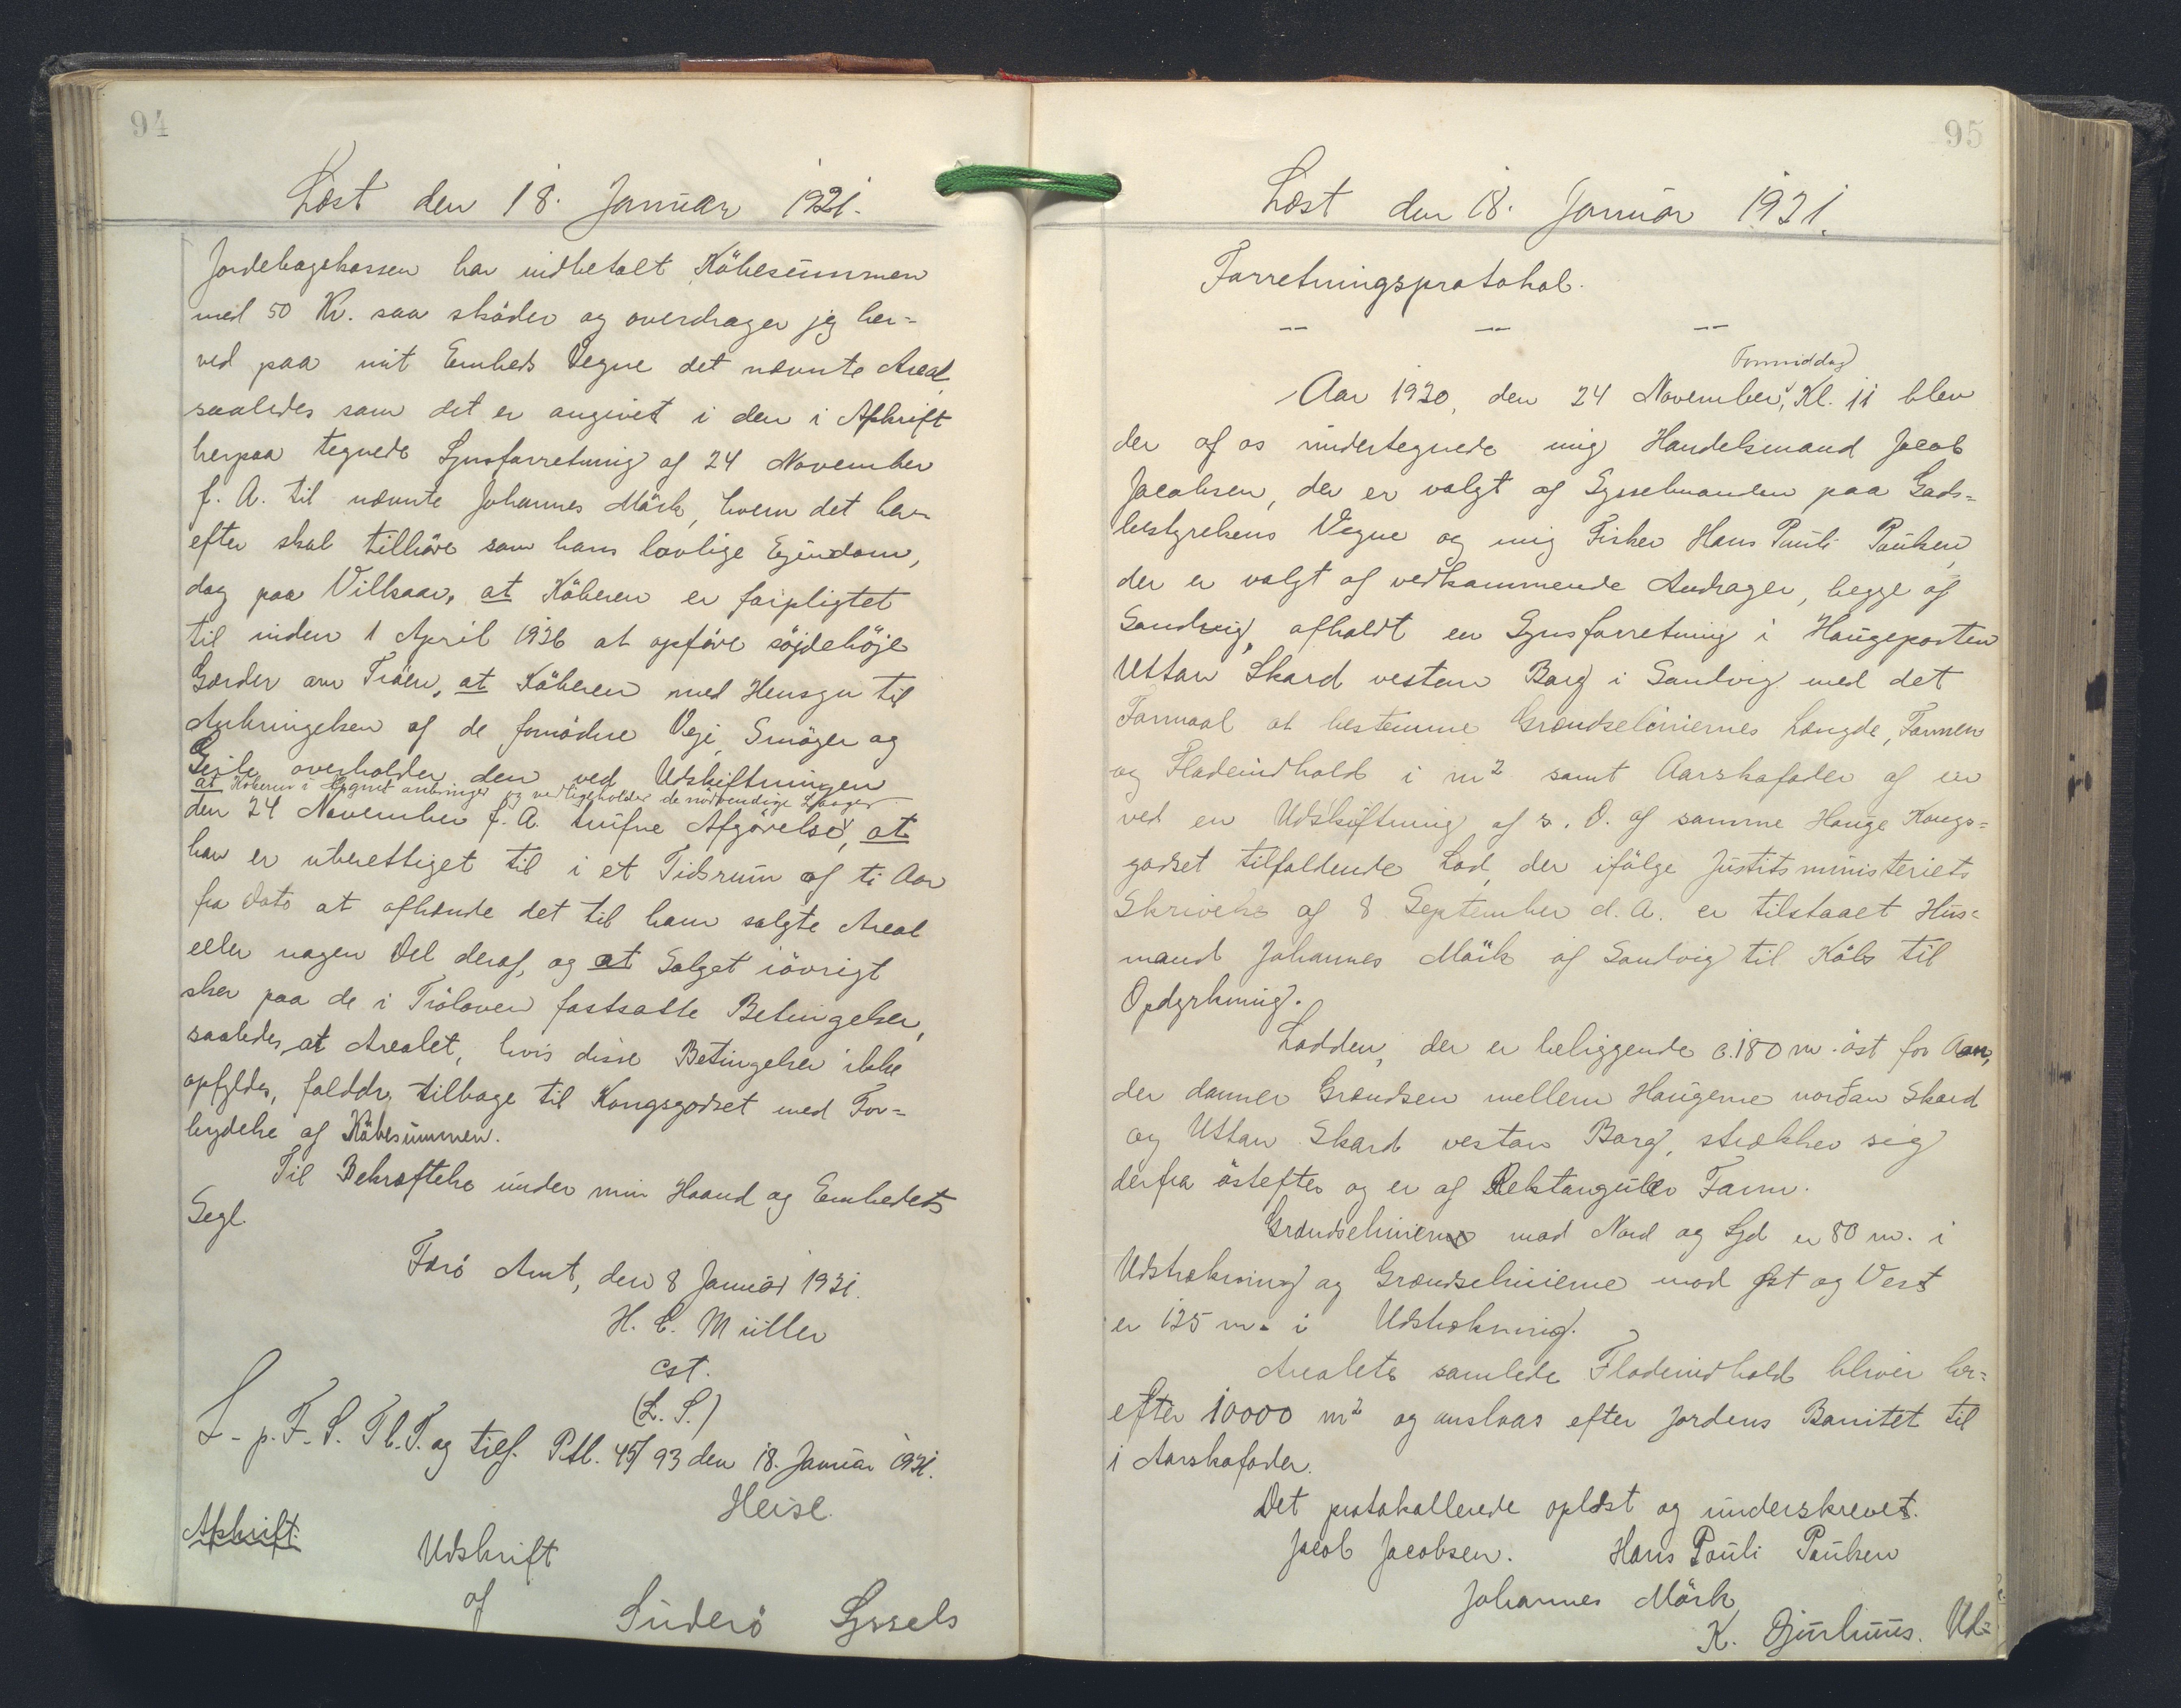 94
Læst den 18. Januar 1931.
Jordebogskassen har indbetalt Købesummen
med 50 Kr. saa skøder og overdrager jeg her-
ved paa mit Embeds Vegne det nævnte Areal,
saaledes som det er angivet i den i Afskrift
herpaa tegnede Synsforretning af 24 November
f. A. til nævnte Johannes Mörk, hvem det her-
efter skal tilhøre som hans lovlige Ejendom,
dog paa Vilkaar, at Køberen er forpligtet
til inden 1 April 1936 at opføre söjdehöje
Gærder om Tröen, at Køberen med Hensyn til
Anbringelsen af de fornødne Veje, Smöger og
Geile overholder den ved Udskiftningen
at Køberen i Hegnet anbringer og vedligeholder de nödvendige Laager
den 24 November f. A. trufne Afgørelse, at
han er uberettiget til i et Tidsrum af ti Aar
fra Dato at afhænde det til ham solgte Areal
eller nogen Del deraf, og at Salget iøvrigt
sker paa de i Tröloven fastsatte Betingelser,
saaledes, at Arealet, hvis disse Betingelser ikke
opfyldes, falder tilbage til Kongsgodset med For-
brydelse af Købesummen.
Til Bekræftelse under min Haand og Embedets
Segl.
Færö Amt, den 8 Januar 1931.
H. C. Müller
cst.
(L. S.)
L. p. F. S. Tl. T. og tilf. Ptl. 45/93 den 18. Januar 1931.
Heise.
Afskrift.
Udskrift
af
Suderö Syssels
95
Læst den 18. Januar 1931.
Forretningsprotokol.
— — —
Formiddag
Aar 1930, den 24 November, Kl. 11 blev
der af os undertegnede mig Handelsmand Jacob
Jacobsen, der er valgt af Sysselmanden paa Gods-
bestyrelsens Vegne og mig Fisker Hans Pauli Poulsen,
der er valgt af vedkommende Andrager, begge af
Sandvig, afholdt en Synsforretning i Haugeparten
Uttan Skard vestan Borg i Sandvig med det
Formaal at bestemme Grændseliniernes Længde, Formen
og Fladeindhold i m2 samt Aarskofoder af en
ved en Udskiftning af s. D. af samme Hauge Kongs-
godset tilfaldende Lod, der ifølge Justitsministeriets
Skrivelse af 8 September d. A. er tilstaaet Hus-
mand Johannes Mörk af Sandvig til Køb til
Opdyrkning.
Lodden, der er beliggende c. 180 m. öst for Aaen,
der danner Grændsen mellem Haugerne nordan Skard
og Uttan Skard vestan Borg, strækker sig
derfra östefter og er af Rektangulær Form.
Grændselinierne mod Nord og Syd er 80 m. i
Udstrækning og Grændselinierne mod Øst og Vest
er 125 m. i Udstrækning.
Arealets samlede Fladeindhold bliver her-
efter 10000 m2 og anslaas efter Jordens Bonitet til
1 Aarskofoder.
Det protokollerede oplæst og underskrevet.
Jacob Jacobsen. Hans Pauli Poulsen
Johannes Mörk
K. Djurhuus. Ud-